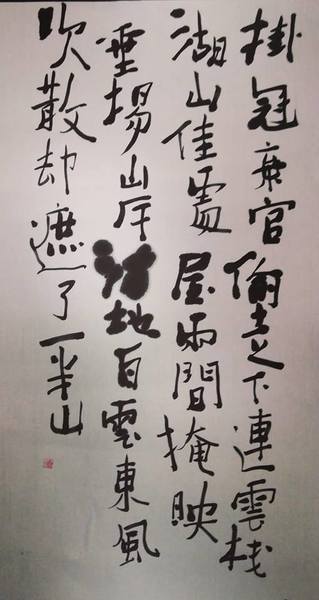 掛冠棄官偷走下連雲栈
湖山佳處屋兩間掩映
垂楊岸滿地白雲東風
吹散却遮了一半山